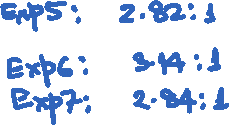 Exp5: 2.82:1
Exp6: 3.14:1
Exp7: 2.84:1